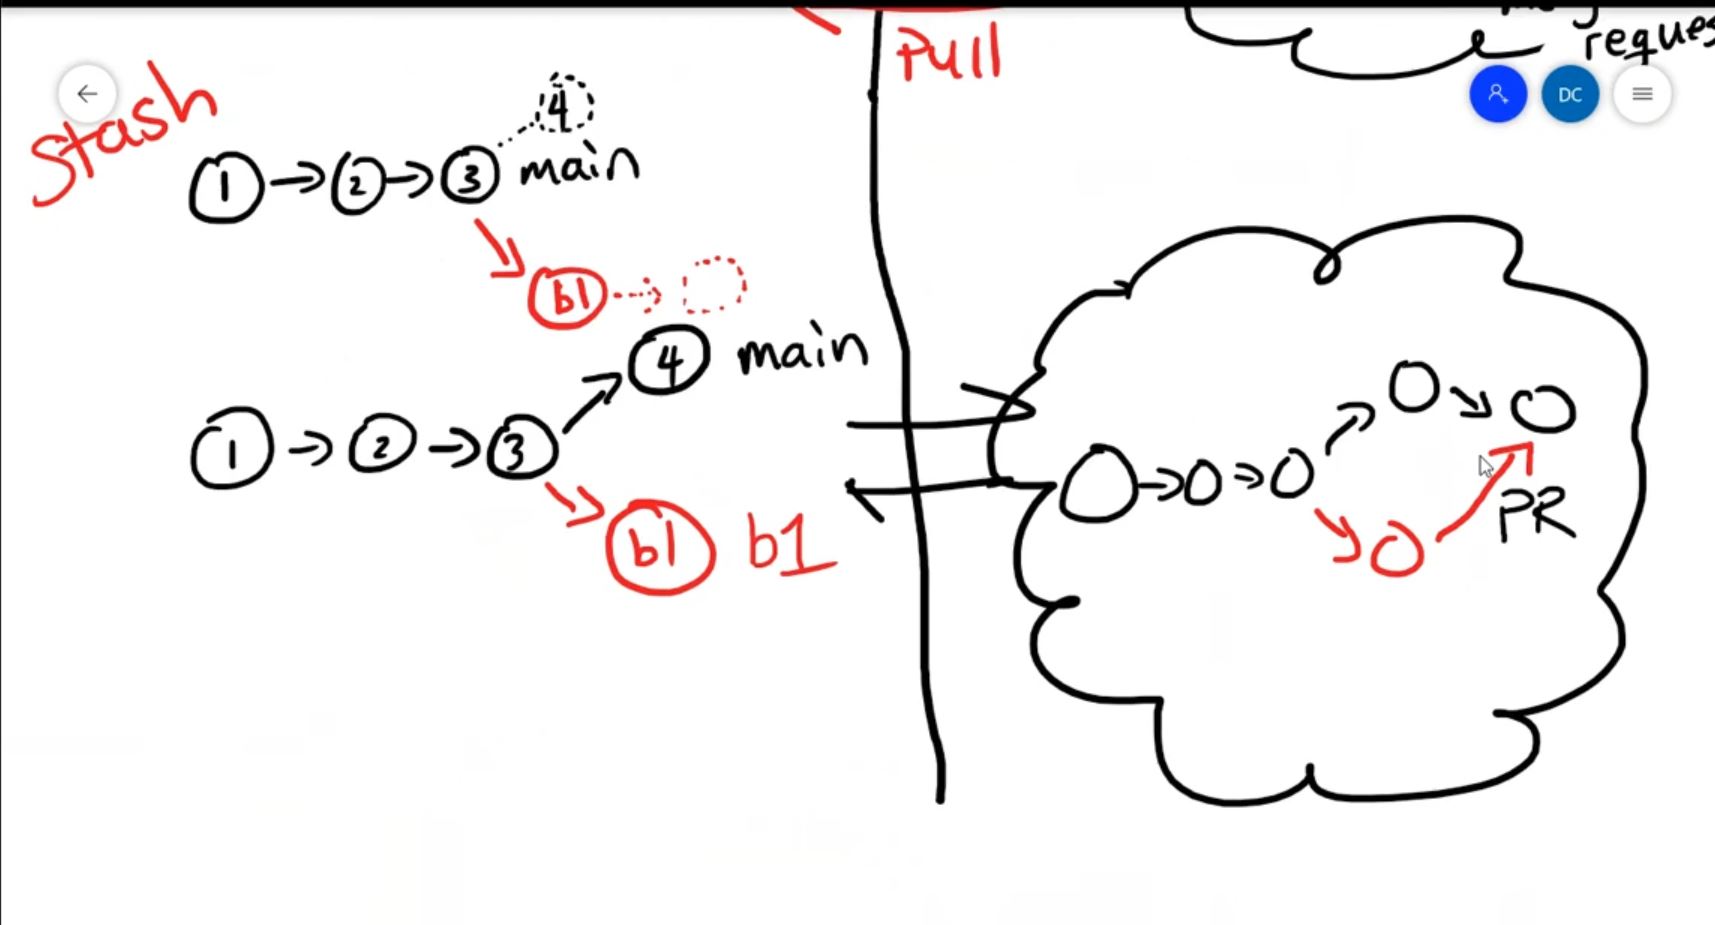 Pull
reques
DC
Stash
4
1 2 3 main
b1
4 main
1 2 3
b1 b1
PR